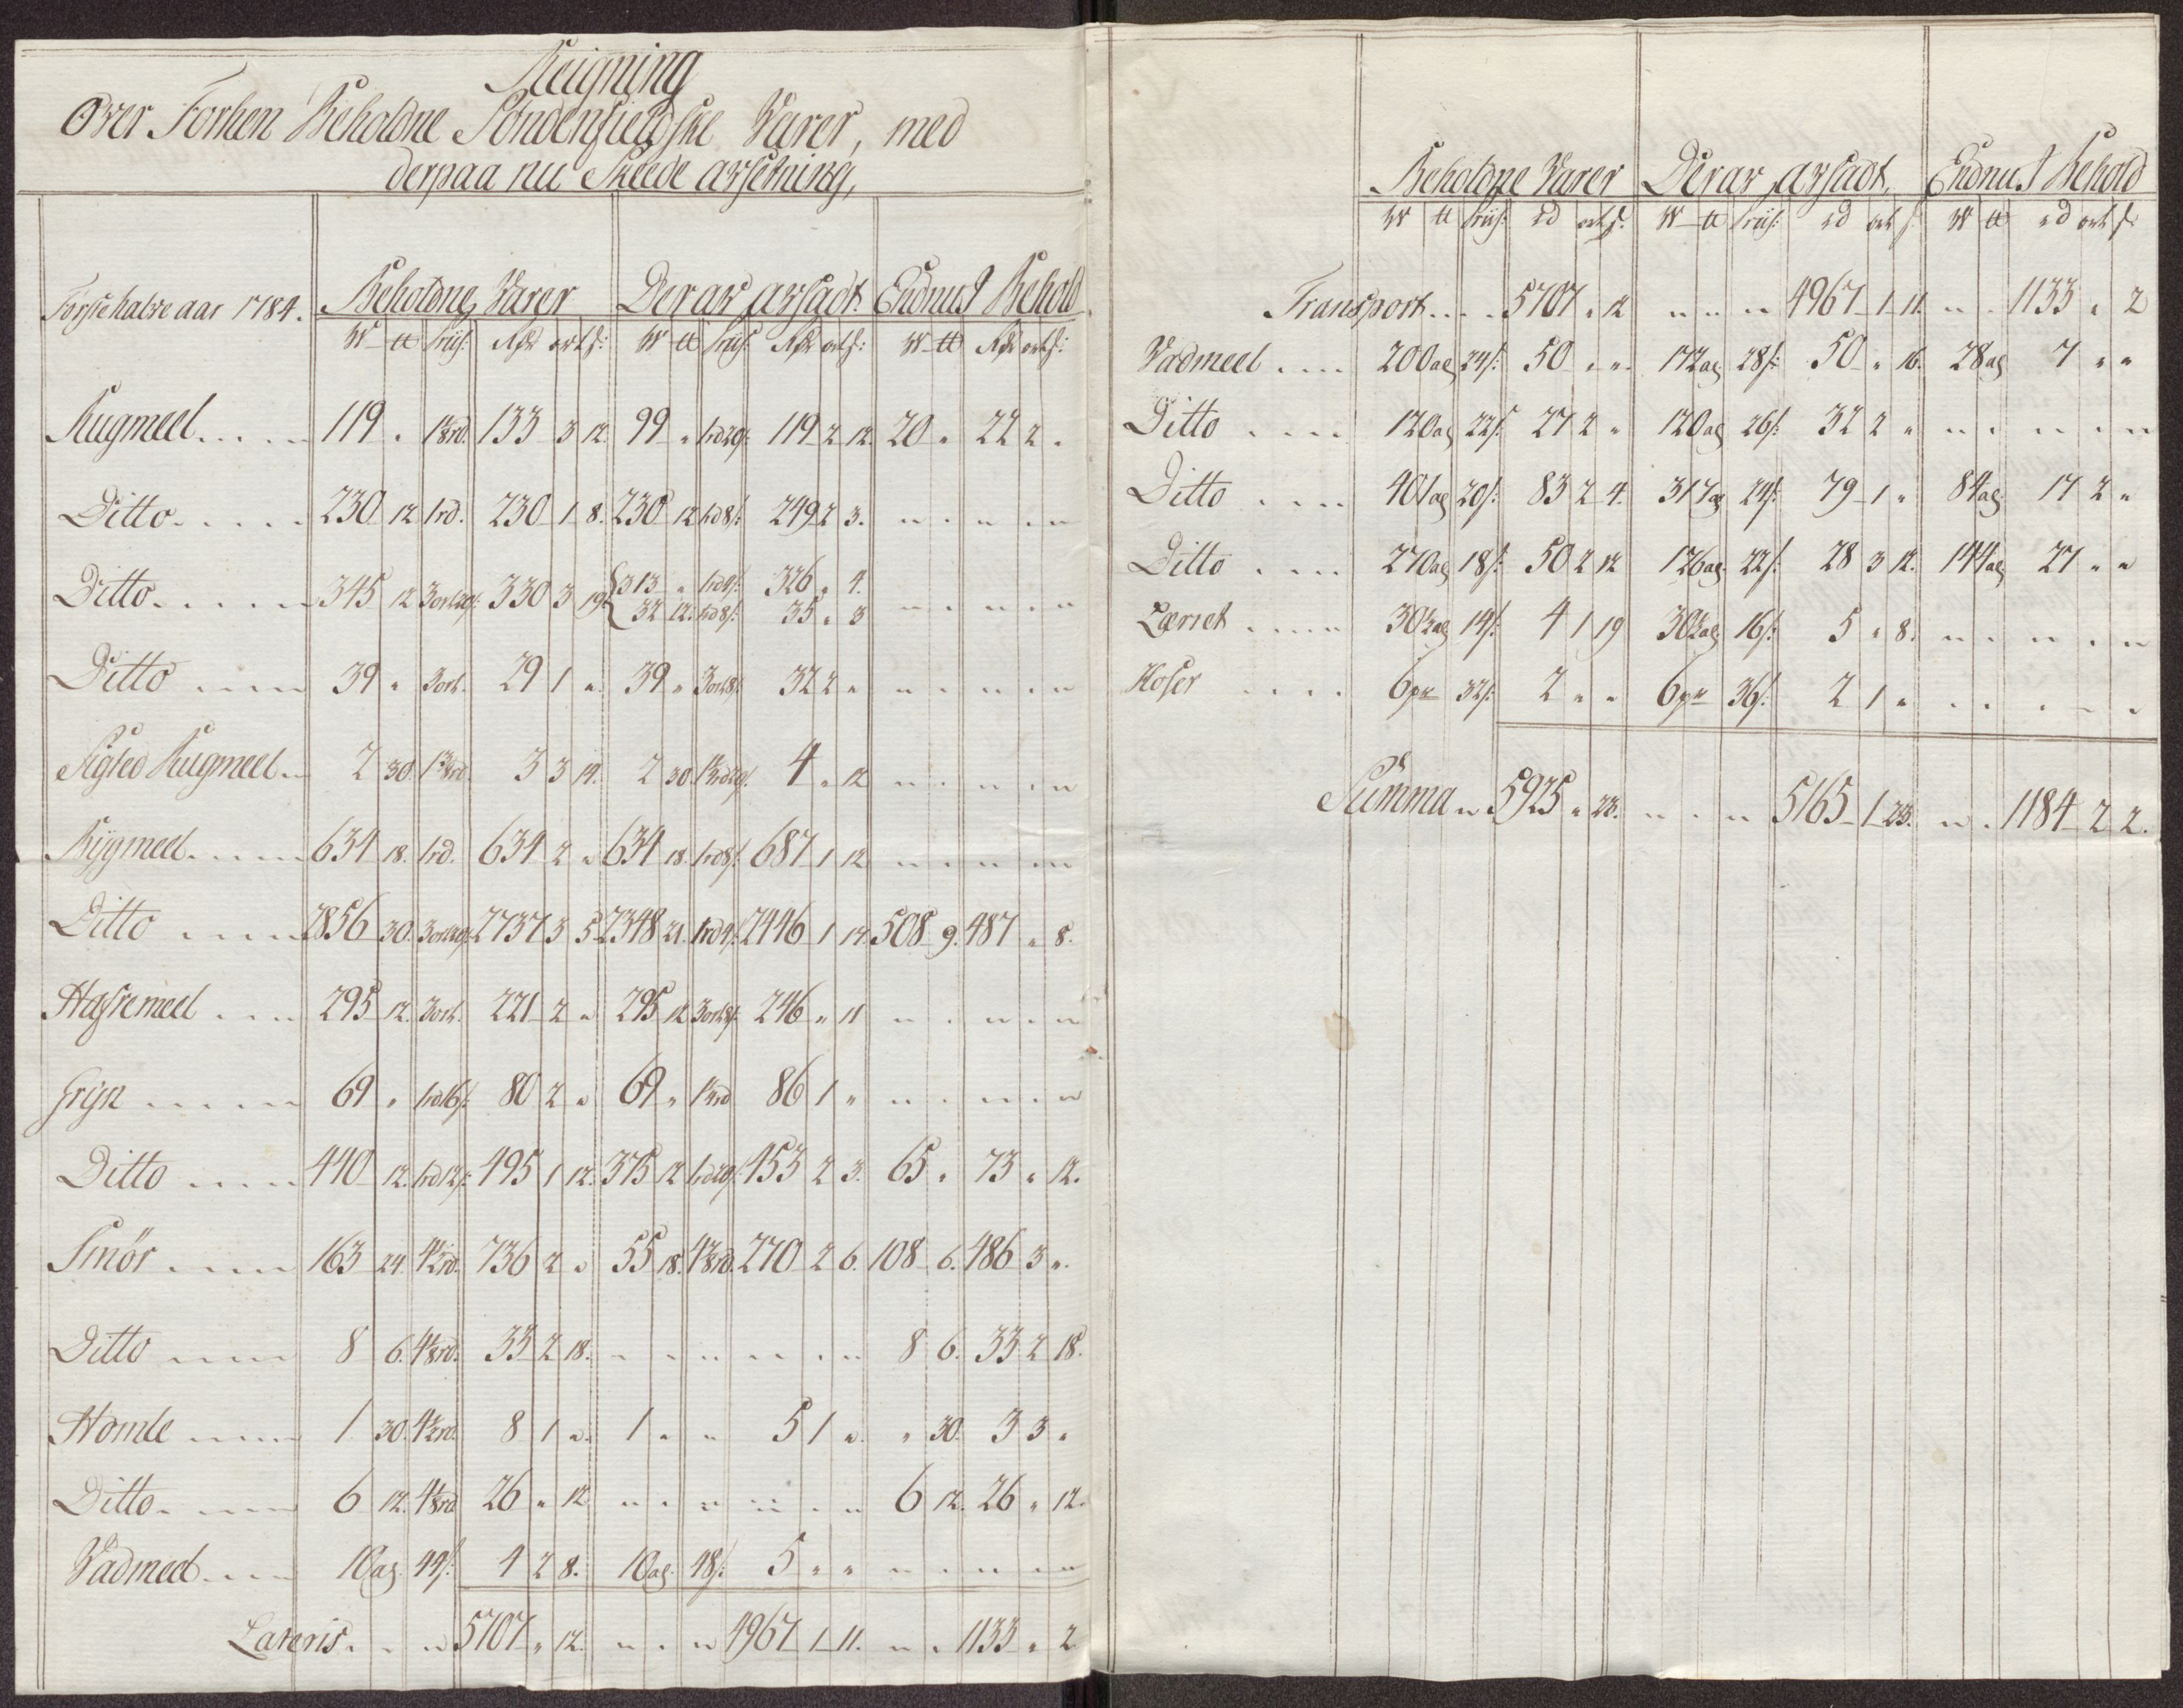 Reigning
Over Forhen Beholdne Söndenfieldske Varer, med
derpaa nu Skeede avsetning,
Förste halve aar 1784. Beholdne Varer Derav avsadt. Endnu I Behold
W tt Priis: Rdr ort s: W tt Priis: Rdr ort s: W tt Rdr ort s:
Rugmeel 119 " 1⅛rd. 133 3 12. 99 " 1rd20s: 119 2 12. 20 " 22 2 "
Ditto 230 12 1rd. 230 1 8. 230 12 1rd8s: 249 2 3. " " " " "
Ditto 345 12 3ort20s: 330 3 19. 313 " 1rd4s: 326 " 4. " " " " "
32 12. 1rd8s: 35 " 3
Ditto 39 " 3ort. 29 1 " 39 " 3ort8s: 32 2 " " " " " "
Sigted Rugmeel 2 30. 3 3 14. 2 30. 4 " 12 " " " " "
Bygmeel 634 18. 1rd. 634 2 " 634 18. 1rd8s: 687 1 12 " " " " "
Ditto 2856 30. 3ort20s: 2737 3 5. 2348 21. 1rd4s: 2446 1 14. 508 9. 487 " 8.
Hafremeel 295 12. 3ort. 221 2 " 295 12 3ort8s: 246 " 11 " " " " "
Gryn 69 " 1rd16s: 80 2 " 69 " 1¼rd 86 1 " " " " " "
Ditto 440 12. 1rd12s: 495 1 12. 375 12 1rd20s: 453 2 3. 65 " 73 " 12.
Smör 163 24. 4½rd. 736 2 " 55 18. 270 2 6. 108 6. 486 3 "
Ditto 8 6. 4⅛rd. 33 2 18. " " " " " " 8 6. 33 2 18.
Homle 1 30. 4½rd. 8 1 " 1 " " 5 1 " " 30. 3 3 "
Ditto 6 12. 4⅛rd 26 " 12 " " " " " " 6 12. 26 " 12.
Vadmeel 10al. 44s: 4 2 8. 10al. 48s: 5 " " " " " " "
Lateris 5707 " 12. " " " 4967 1 11. " " 1133 " 2
Beholdne Varer Derav avsadt, Endnu I Behold
W tt Priis: rd ort s: W tt Priis: rd ort s: W tt rd ort s:
Transport 5707 " 12 " " " 4967 1 11. " " 1133 " 2
Vadmeel 200al 24s: 50 " " 172al. 28s: 50 " 16. 28al 7 " "
Ditto 120al 22s: 27 2 " 120al 26s: 32 2 " " " " " "
Ditto 401al 20s: 83 2 4. 317al 24s: 79 1 " 84al. 17 2 "
Ditto 270al 18s: 50 2 12 126al. 22s: 28 3 12. 144al 27 " "
Lærret 30½al 14s: 4 1 19 30½al. 16s: 5 " 8. " " " " "
Hoser 6pr 32s: 2 " " 6pr 36s: 2 1 " " " " " "
Summa 5925 " 23. " " " 5165 1 23. " " 1184 2 2.